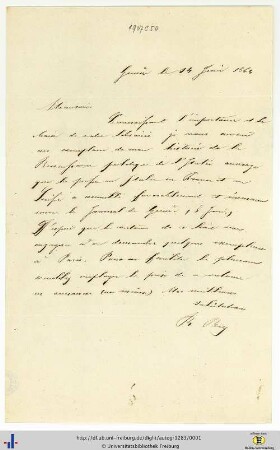 1947 C 50
Genève le 14 Juin 1862
Monsieur
Connaissant l'importance et la
de votre librairie je vous envoie
un exemplaire de mon histoire de la
Renaissance politique de l'Italie ouvrage
que la presse en Italie en France et en
Suisse a accueilli favorablement
voir le Journal de Genève, 5 Juin,
J'espère que la lecture de ce livre vous
engagera à en demander quelques exemplaires
à Paris. Pour en faciliter le placement
veuillez employer le prix de ce volume
en annonces
Mes meilleures
salutations
http://dl.ub.uni-freiburg.de/diglit/autogr0283/0001
© Universitätsbibliothek Freiburg